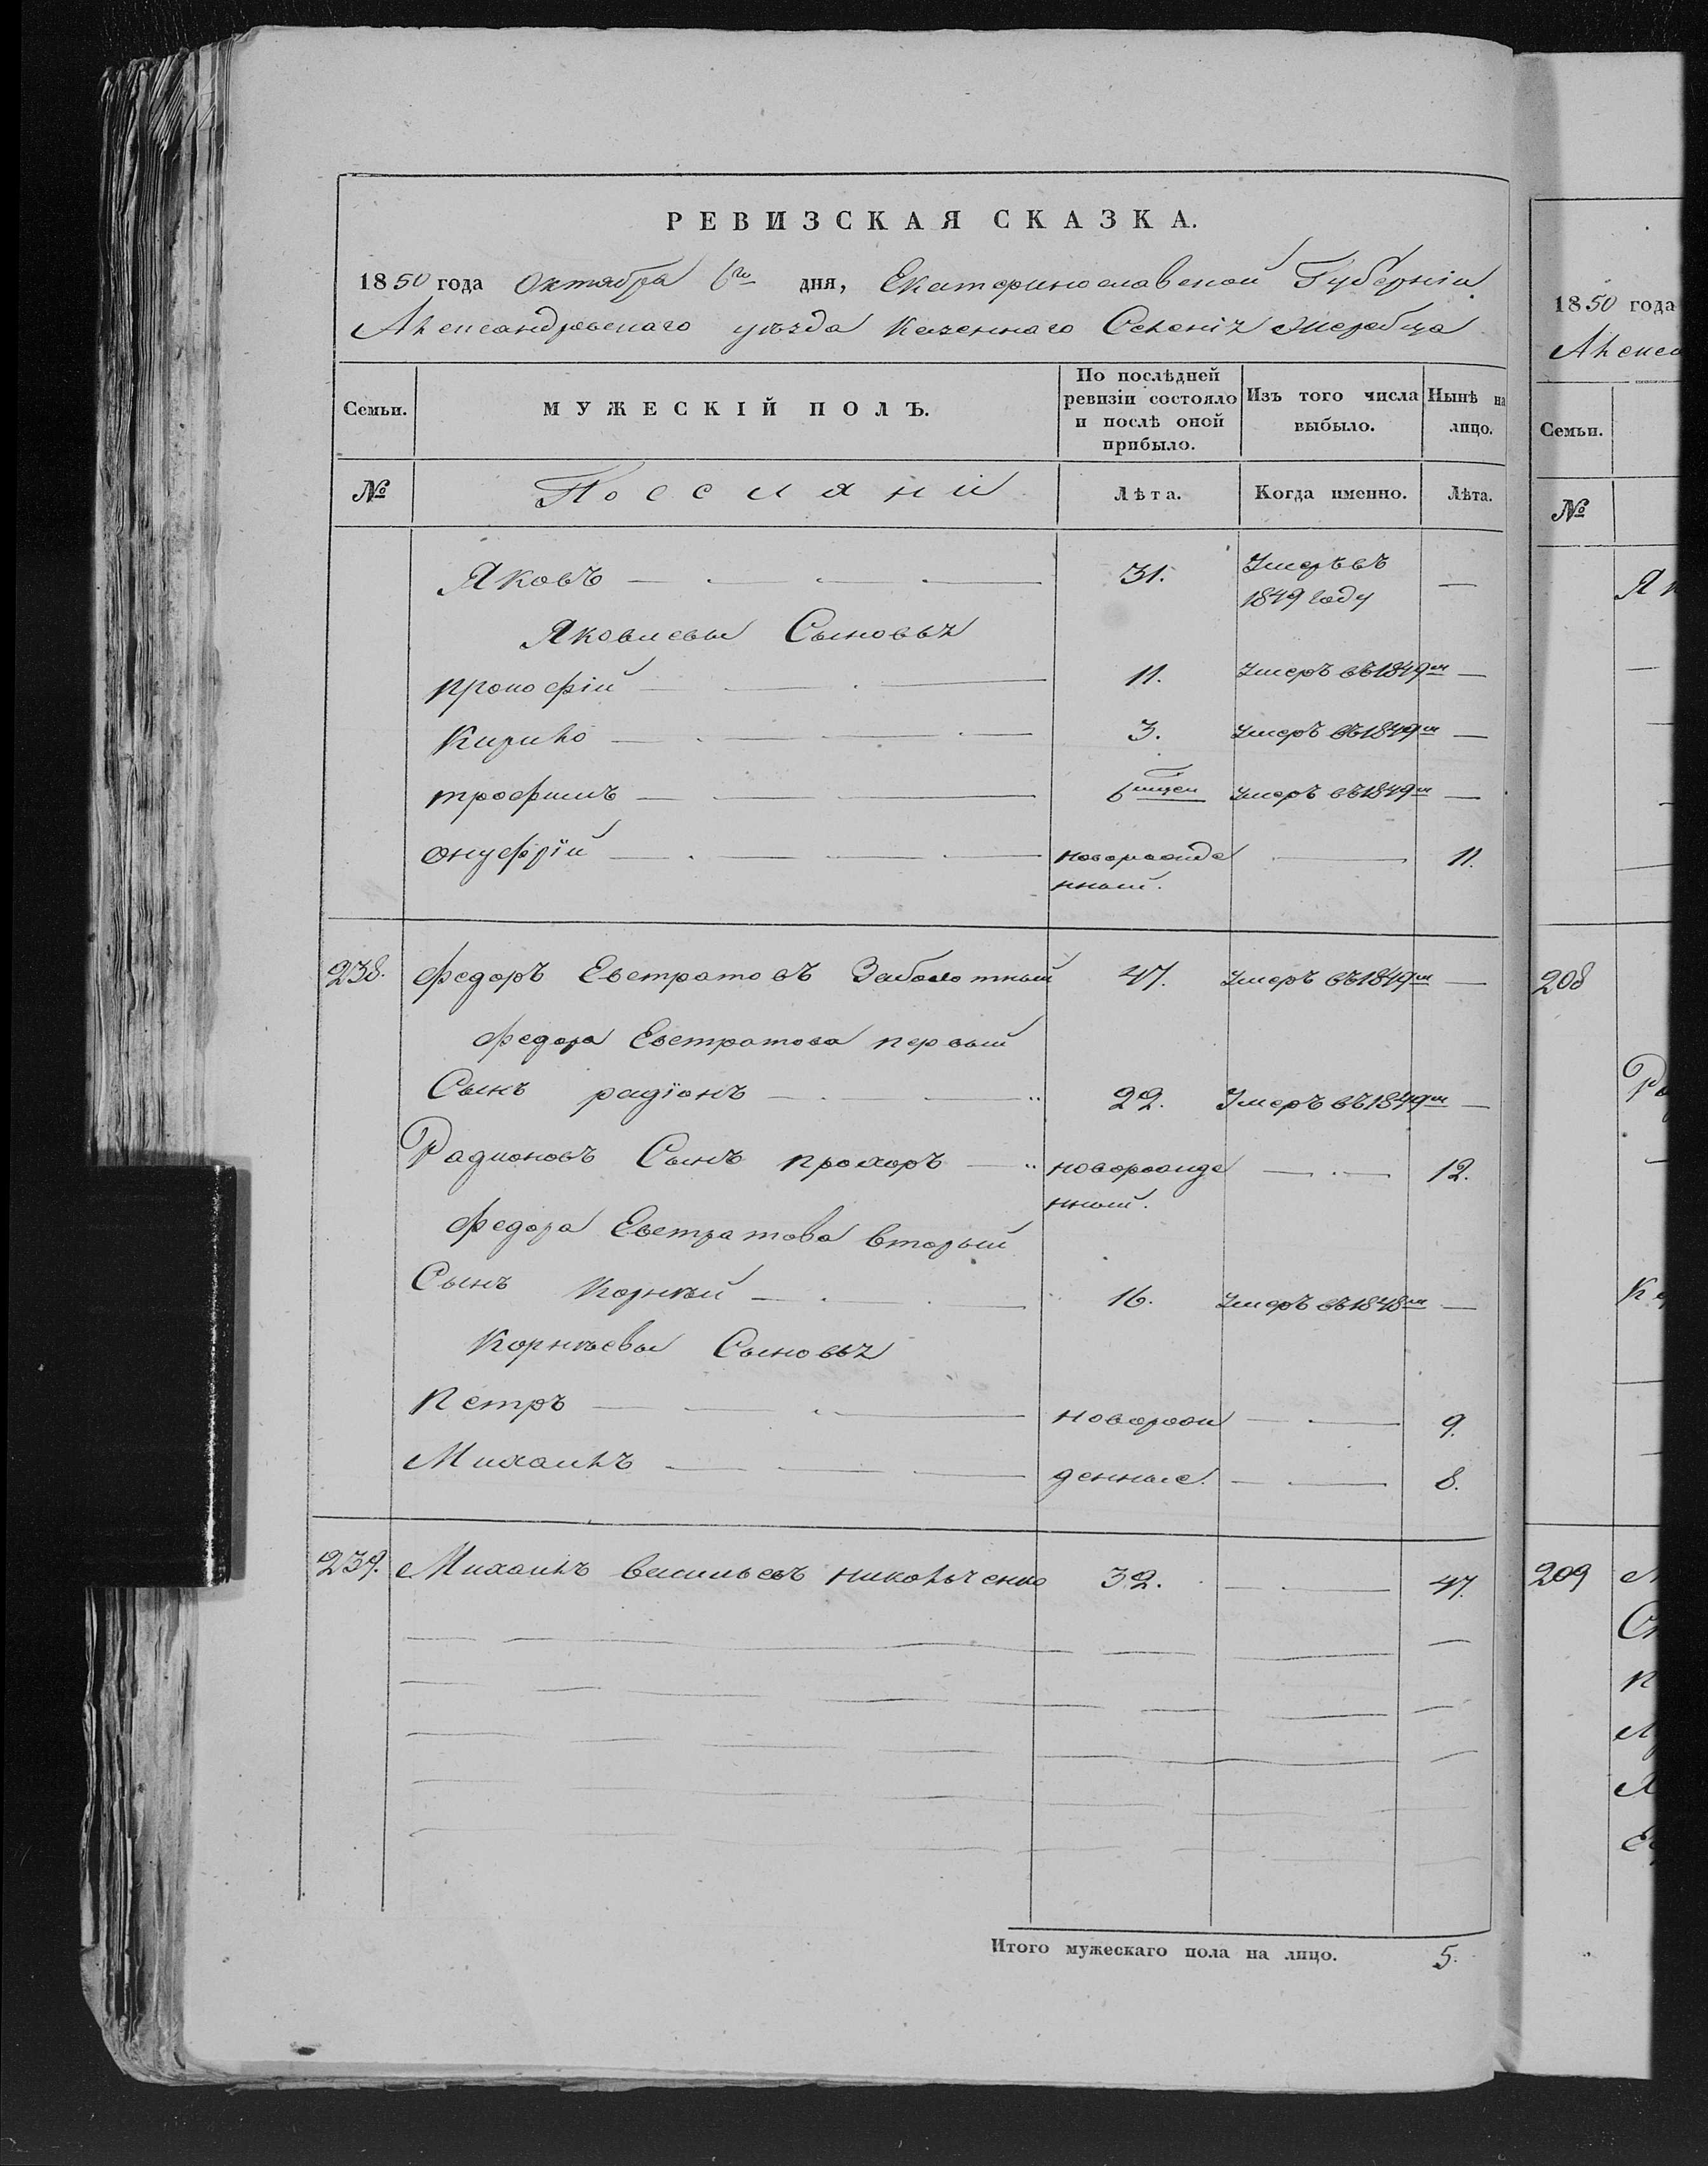 РЕВИЗСКАЯ СКАЗКА.
1850 года Октября 6го дня, Екатеринославской Губерніи
Александровскаго уѣзда Казеннаго Селенія Жеребца
Семьи. МУЖЕСКІЙ ПОЛЪ. По послѣдней ревизіи состояло и послѣ оной прибыло. Изъ того числа выбыло. Нынѣ на лицо.
№ Поселяни Лѣта. Когда именно. Лѣта.
Яковъ — 31. Умеръ въ 1849 году —
Яковлевы Сыновья
прокофій — 11. Умеръ въ 1849м —
Кирило — 3. Умеръ въ 1849м —
трофимъ — 6 Умеръ въ 1849м —
онуфрій — новорожденный. — 11.
238. федоръ Евстратовъ Заболотный 47. Умеръ въ 1849м —
федора Евстратова первый
Сынъ радіонъ — 22. Умеръ въ 1849м —
Радионовъ Сынъ прохоръ — новорожденный. — 12.
федора Евстратова вторый
Сынъ Корнѣй — 16. Умеръ въ 1848м —
Корнѣевы Сыновья
Петръ — новорож — 9.
Михаилъ — денные. — 8.
239. Михаилъ васильевъ никольченко 32. — 47.
Итого мужескаго пола на лицо. 5.
1850 года
Алекса
Семьи.
№
Як
208
Ра
209